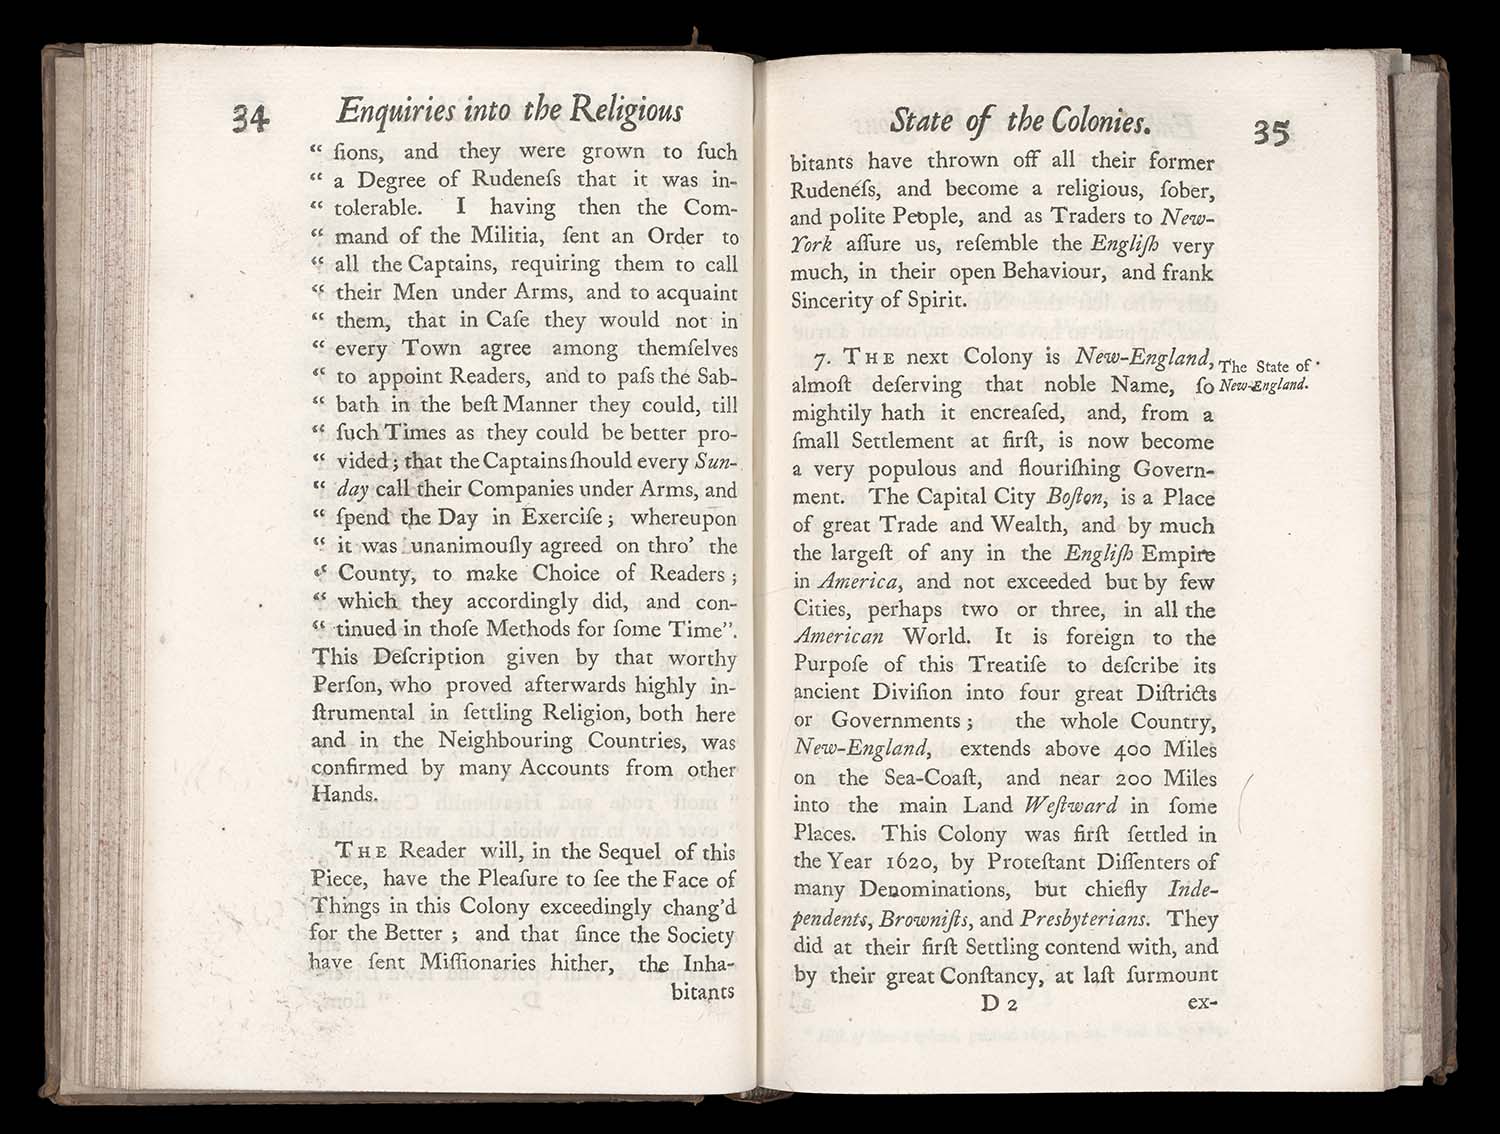 34 Enquiries into the Religious
“ ſions, and they were grown to ſuch
“ a Degree of Rudeneſs that it was in-
“ tolerable. I having then the Com-
“ mand of the Militia, ſent an Order to
“ all the Captains, requiring them to call
“ their Men under Arms, and to acquaint
“ them, that in Caſe they would not in
“ every Town agree among themſelves
“ to appoint Readers, and to paſs the Sab-
“ bath in the beſt Manner they could, till
“ ſuch Times as they could be better pro-
“ vided; that the Captains ſhould every Sun-
“ day call their Companies under Arms, and
“ ſpend the Day in Exerciſe; whereupon
“ it was unanimouſly agreed on thro’ the
“ County, to make Choice of Readers;
“ which they accordingly did, and con-
“ tinued in thoſe Methods for ſome Time”.
This Deſcription given by that worthy
Perſon, who proved afterwards highly in-
ſtrumental in ſettling Religion, both here
and in the Neighbouring Countries, was
confirmed by many Accounts from other
Hands.
THE Reader will, in the Sequel of this
Piece, have the Pleaſure to ſee the Face of
Things in this Colony exceedingly chang’d
for the Better; and that ſince the Society
have ſent Miſſionaries hither, the Inha-
bitants
State of the Colonies. 35
bitants have thrown off all their former
Rudeneſs, and become a religious, ſober,
and polite People, and as Traders to New-
York aſſure us, reſemble the Engliſh very
much, in their open Behaviour, and frank
Sincerity of Spirit.
7. THE next Colony is New-England,
almoſt deſerving that noble Name, ſo
mightily hath it encreaſed, and, from a
ſmall Settlement at firſt, is now become
a very populous and flouriſhing Govern-
ment. The Capital City Boſton, is a Place
of great Trade and Wealth, and by much
the largeſt of any in the Engliſh Empire
in America, and not exceeded but by few
Cities, perhaps two or three, in all the
American World. It is foreign to the
Purpoſe of this Treatiſe to deſcribe its
ancient Diviſion into four great Diſtricts
or Governments; the whole Country,
New-England, extends above 400 Miles
on the Sea-Coaſt, and near 200 Miles
into the main Land Weſtward in ſome
Places. This Colony was firſt ſettled in
the Year 1620, by Proteſtant Diſſenters of
many Denominations, but chiefly Inde-
pendents, Browniſts, and Presbyterians. They
did at their firſt Settling contend with, and
by their great Conſtancy, at laſt ſurmount
D 2 ex-
The State of
New-England.